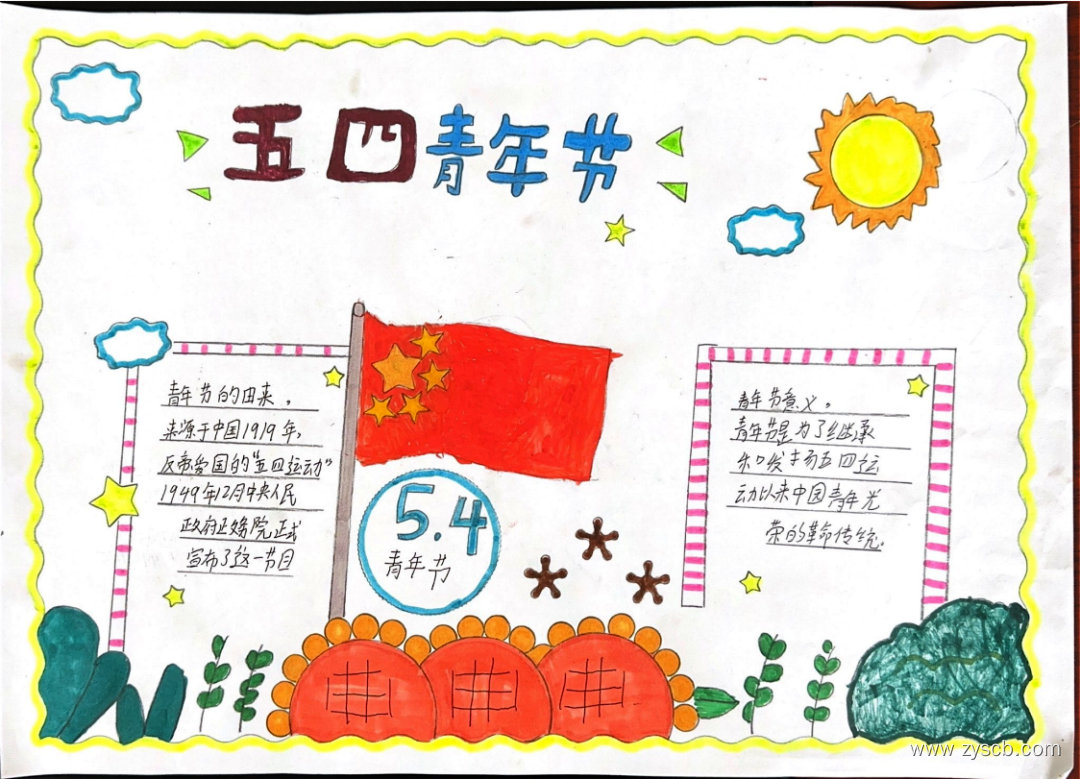 五四青年节
青年节的由来。
来源于中国1919年,
反帝爱国的"五四运动"
1949年12月中央人民
政府正务院正式
宣布了这一节目
5.4
青年节
青年节意义。
青年节是为了继承
和发扬五四运
动以来中国青年光
荣的革命传统。
www.zyscb.com